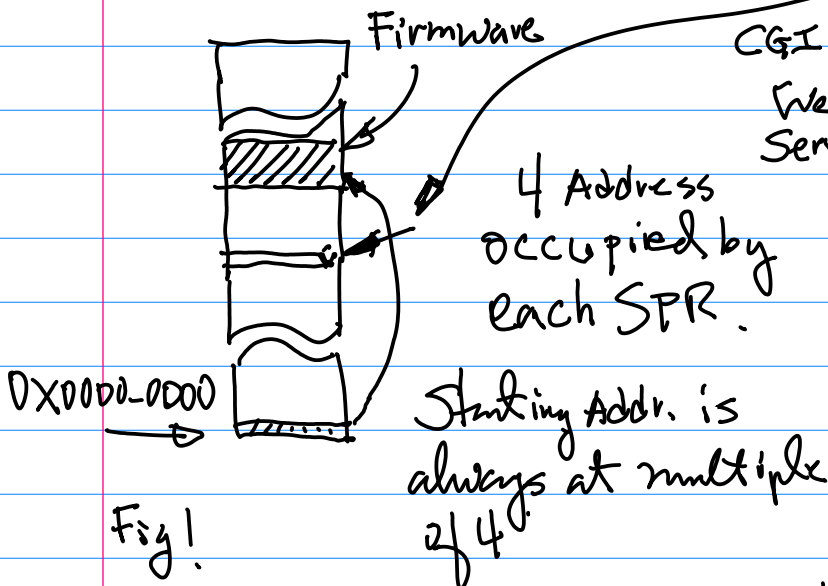 Firmware
CGI
We
Serv
4 Address
occupied by
each SPR.
0x0000-0000
Starting Addr. is
always at multiple
of 4
Fig1